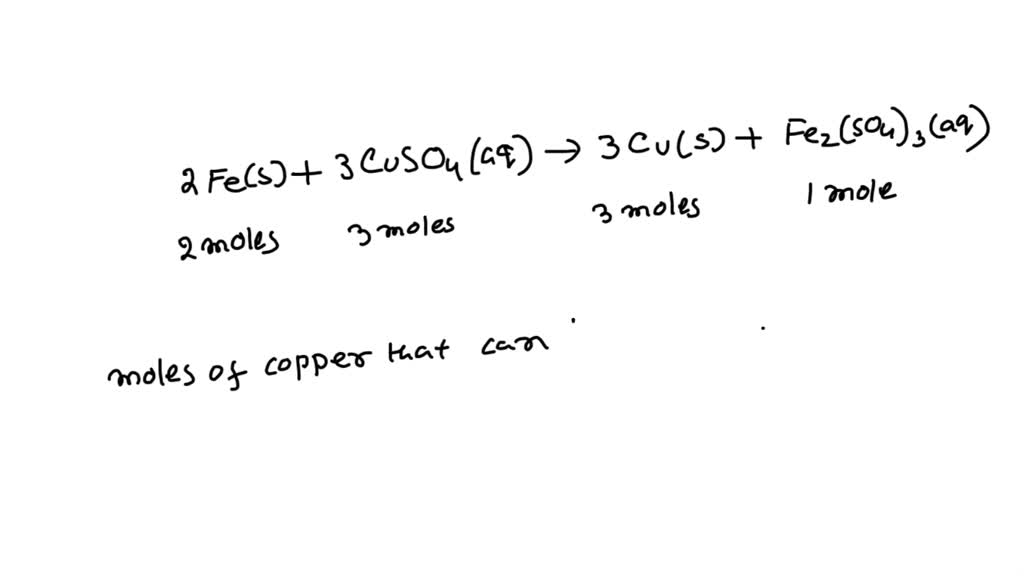 2 Fe(s) + 3 CuSO4 (aq) → 3 Cu(s) + Fe2(SO4)3 (aq)
2 moles 3 moles 3 moles 1 mole
moles of copper that can